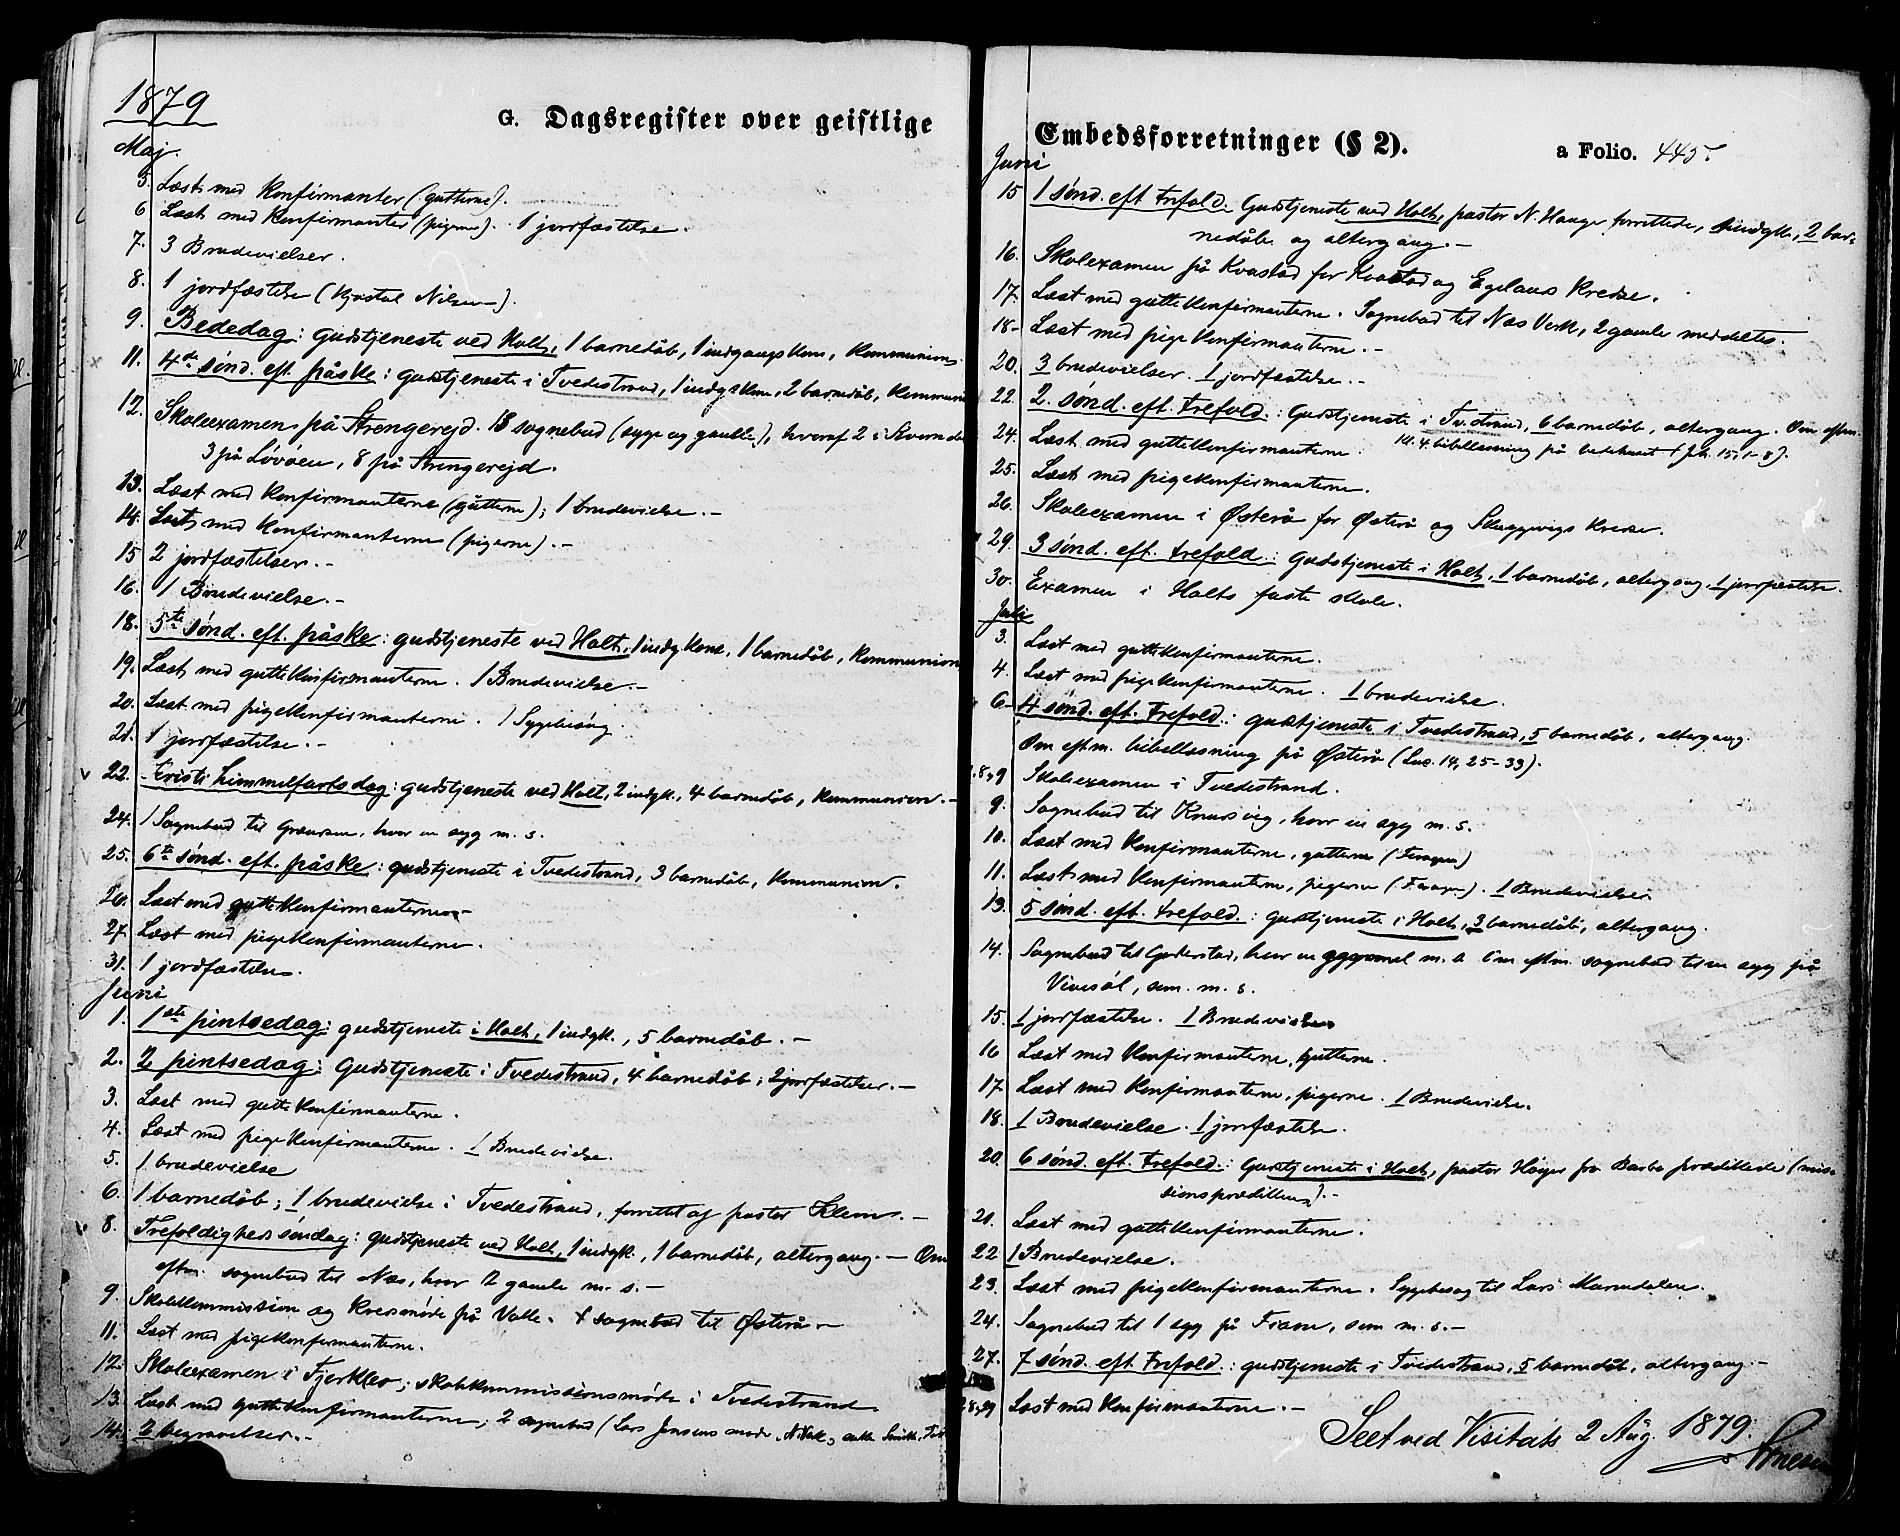 1879
G. Dagsregister over geistlige
Maj.
5. Læst med Konfirmanter (gutterne).
6 Læst med Konfirmanter (pigerne). 1 jordfæstelse.
7. 3 Brudevielser.
8. 1 jordfæstelse (Kristal Nilsen).
9. Bededag: gudstjeneste ved Holt, 1 barnedåb, 1 indgangskone, Kommunion.
11. 4de sønd. eft. påske: gudstjeneste i Tvedestrand, 1 indg.kone, 2 barnedåb, Kommuni
12. Skoleexamen på Strengerejd. 13 sognebud (syge og gamle), hvoraf 2 i
3 på Løvøen, 8 på Strengerejd.
13. Læst med Konfirmanterne (gutterne); 1 brudevielse.-
14. Læst med Konfirmanterne (pigerne).-
15 2 jordfæstelser.-
16. 1 Brudevielse.-
18. 5te sønd. eft. påske: gudstjeneste ved Holt, 1 indg.kone, 1 barnedåb, Kommunion
19. Læst med guttekonfirmanterne. 1 Brudevielse.-
20. Læst med pigekonfirmanterne. 1 Sygebesøg.
21. 1 jordfæstelse.-
22. Kristi himmelfartsdag: gudstjeneste ved Holt, 2 indgk., 4 barnedåb, Kommunion.-
24. 1 Sognebud til Grænsen, hvor en syg m. s.
25. 6te sønd. eft. påske: gudstjeneste i Tvedestrand, 3 barnedåb, Kommunion.
26. Læst med guttekonfirmanterne.-
27. Læst med pigekonfirmanterne.
31. 1 jordfæstelse.
Juni
1. 1ste pintsedag: gudstjeneste i Holt, 1 indgk., 5 barnedåb.-
2. 2 pintsedag: Gudstjeneste i Tvedestrand, 4 barnedåb; 2 jordfæstelser.-
3. Læst med guttekonfirmanterne.
4. Læst med pigekonfirmanterne. 1 Brudevielse.
5. 1 brudevielse
6. 1 barnedåb; 1 brudevielse i Tvedestrand, forrettet af pastor Klem.-
8. Trefoldighedssøndag: gudstjeneste ved Holt, 1 indgk., 1 barnedåb, altergang.- Om
eftm. sognebud til Næs, hvor 2 gamle m. s.-
9. Skolekommission og Kredsmøde på Valle. 1 sognebud til Østerå.-
11. Læst med pigekonfirmanterne.
12. Skoleexamen i Fjerkleo; skolekommissionsmøde i Tvedestrand.
13. Læst med guttekonfirmanterne; 2 sognebud (Lars Jensens moder,
14. 2 begravelser.-
Embedsforretninger (§ 2).
a Folio. 445.
Juni
15 1 sønd. eft trefold. Gudstjeneste ved Holt, pastor N. Hauge forrettede, 1 indgk., 2 bar-
nedåb og altergang.-
16. Skolexamen på Kvastad for Kvastad og Egelands Kredse.
17. Læst med guttekonfirmanterne. Sognebud til Næs Verk, 2 gamle meddeltes.
18- Læst med pigekonfirmanterne.-
20. 3 brudevielser. 1 jordfæstelse.-
22. 2. sønd. eft. trefold.: Gudstjeneste i Tv.strand, 6 barnedåb, altergang. Om eftm.
kl. 4. bibellæsning på bedehuset (Joh. 15, 1-8).
24. Læst med guttekonfirmanterne.
25. Læst med pigekonfirmanterne.
26. Skoleexamen i Østerå for Østerå og Skuggevigs Kredse.
29. 3 sønd. eft. trefold.: gudstjeneste i Holt, 1 barnedåb, altergang. 1 jordfæstelse.
30. Examen i Holts faste skole.
Juli
3. Læst med guttekonfirmanterne.
4. Læst med pigekonfirmanterne. 1 brudevielse.
6- 4 sønd. eft. trefold.: gudstjeneste i Tvedestrand, 5 barnedåb, altergang.
Om eftm. bibellæsning på Østerå (Luc. 14, 25-33).
7,8,9 Skoleexamen i Tvedestrand.
9. Sognebud til Knarsvig, hvor en syg m. s.
10. Læst med Konfirmanterne, gutterne
11. Læst med Konfirmanterne, pigerne. 1 Brudevielse.
13. 5 sønd. eft. trefold.: gudstjeneste i Holt, 3 barnedåb, altergang.
14. Sognebud til Goderstad, hvor en gammel m. s. Om eftm. sognebud til en syg på
Vivesøl, som m. s.
15. 1 jordfæstelse. 1 Brudevielse
16 Læst med Konfirmanterne, gutterne.
17. Læst med Konfirmanterne, pigerne. 1 Brudevielse.
18. 1 Brudevielse. 1 jordfæstelse.
20. 6 sønd. eft. trefold.: Gudstjeneste i Holt, pastor Høyer fra Barbo prædikede (mis-
sionsprædiken).-
21. Læst med guttekonfirmanterne.
22 1 Brudevielse.
23. Læst med pigekonfirmanterne. Sygebesøg til Lars Marndalen.
24. Sognebud til 1 syg på Fiane, som m. s.-
27. 7 sønd. eft. trefold.: gudstjeneste i Tvedestrand, 5 barnedåb, altergang.-
28,29 Læst med Konfirmanterne.-
Seet ved Visitats 2 Aug. 1879.